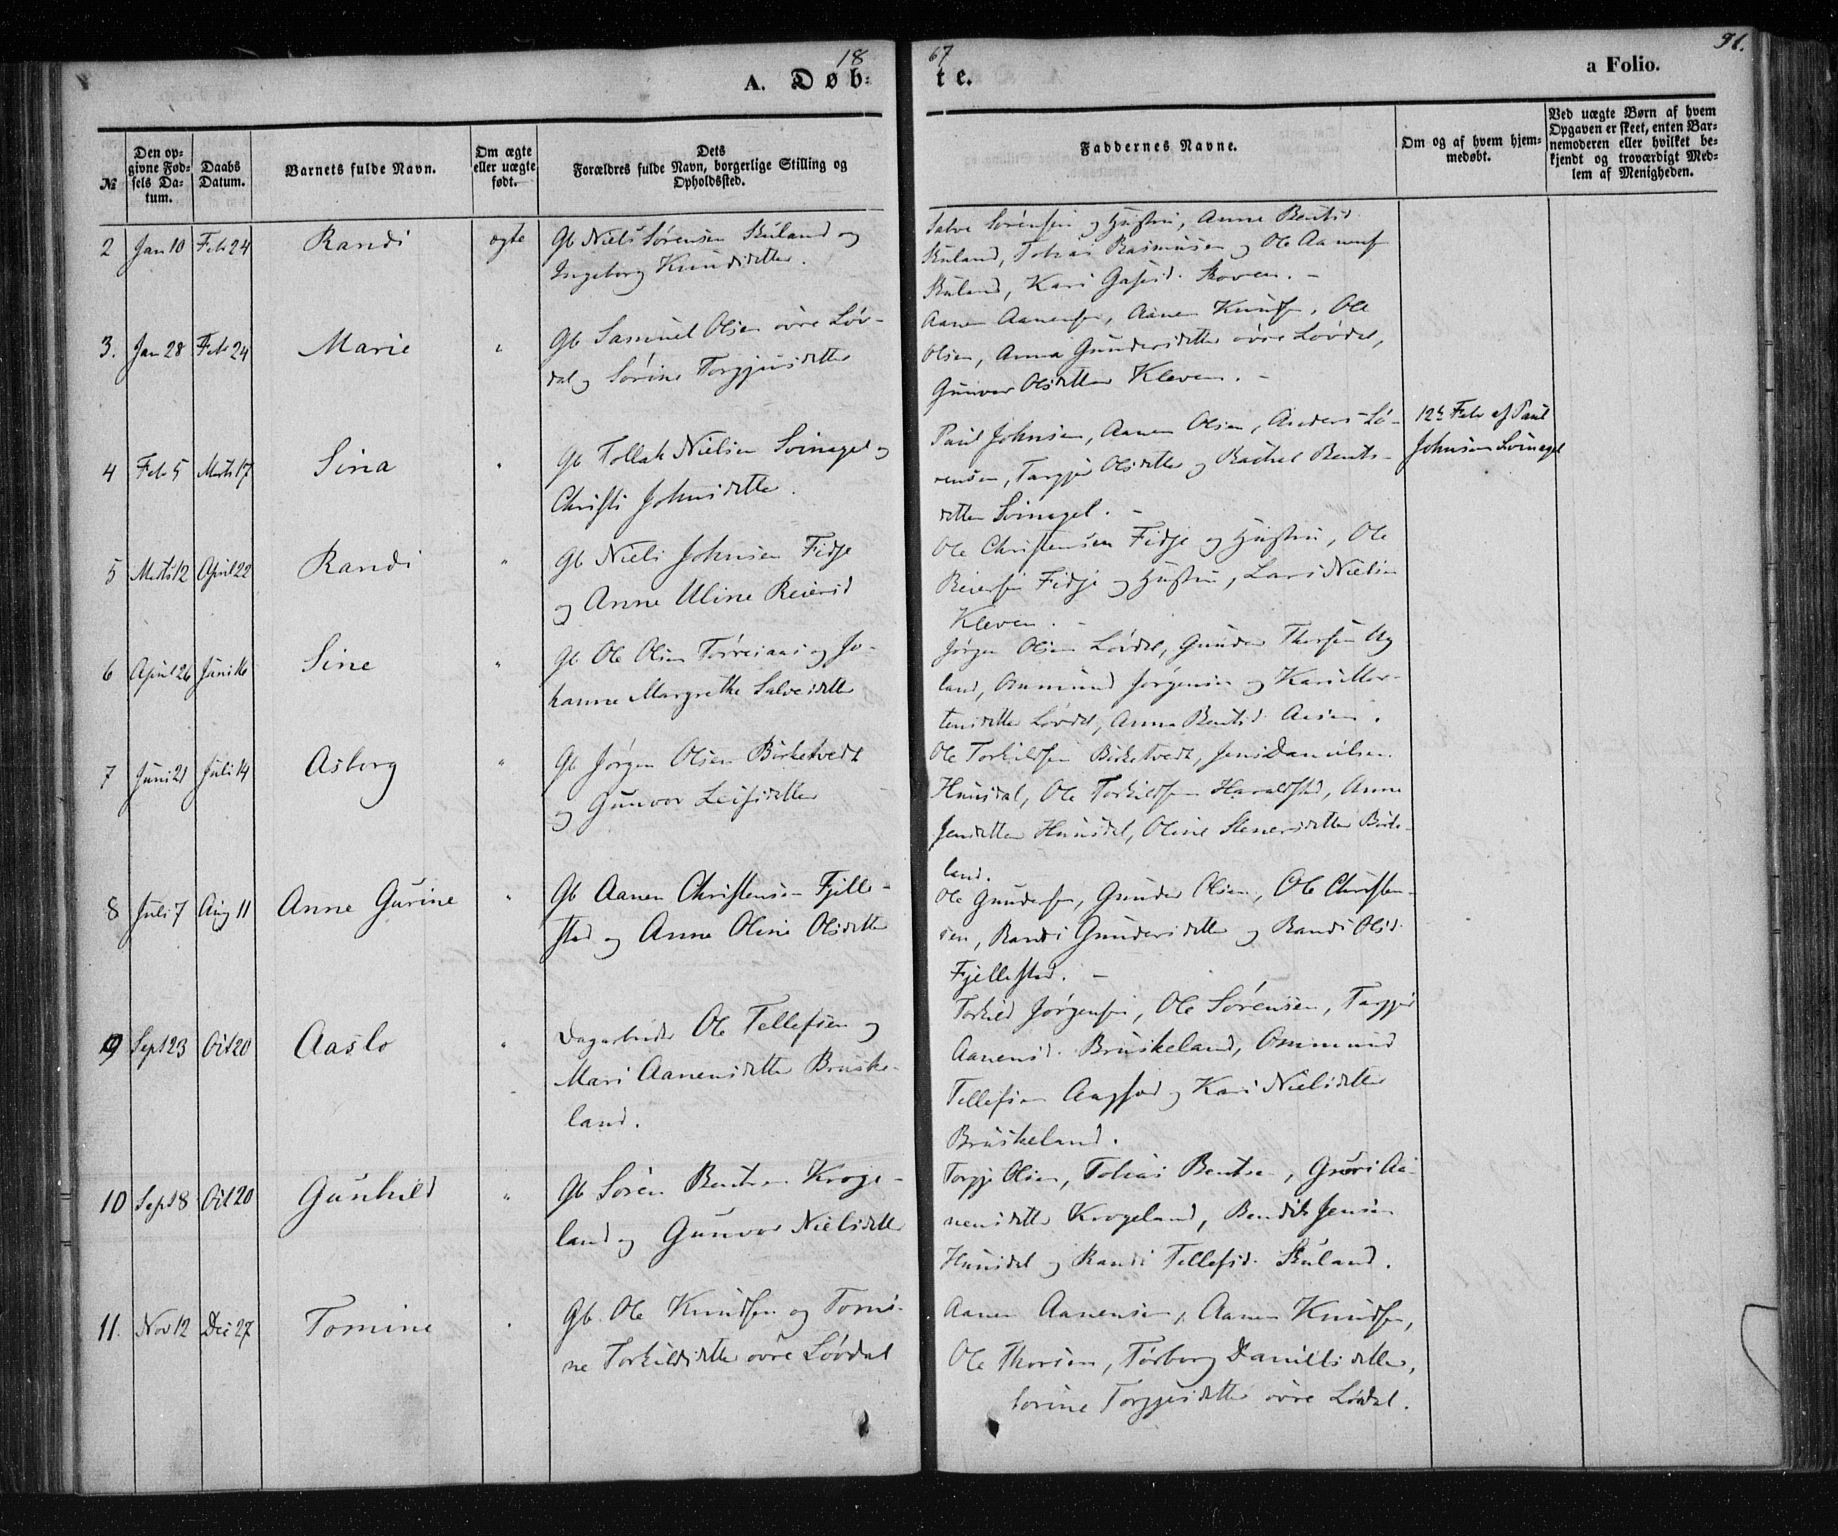 18 67
91.
A. Døbte.
a Folio.
№
Den opgivne Fødsels Datum.
Daabs Datum.
Barnets fulde Navn.
Om ægte eller uægte født.
Dets Forældres fulde Navn, borgerlige Stilling og Opholdssted.
Faddernes Navne.
Om og af hvem hjemmedøbt.
Ved uægte Børn af hvem Opgaven er skeet, enten Barnemoderen eller hvilket bekjendt og troværdigt Medlem af Menigheden.
2 Jan 10 Feb 24 Randi ægte Gb Niels Sørensen Skuland og
Ingeborg Knudsdatter.
Salve Sørensen og Hustru, Anne Bentsd.
Skuland, Tobias Rasmusen og Ole Aanens
Skuland, Kari Skoven. –
3. Jan 28 Feb 24 Marie " Gb Samuel Olsen øvre Løv-
dal og Sørine Torgjusdatter
Aanen Aanensen, Aanen Knuds, Ole
Olsen, Anna Gundersdatter øvre Løvdal,
Gunvor Olsdatter Kleven. –
4 Feb 5 Marts 17 Sina " Gb Tollak Nielsen Svinagel og
Christi Johnsdatter.
Paul Johnsen, Aanen Olsen, Anders Sø-
rensen, Targjer Olsdatter og Rachel Bents-
datter Svinagel. –
12te Feb af Paul
Johnsen Svinagel
5 Marts 12 April 22 Randi " Gb Niels Johnsen Fidje
og Anne Uline Reiersd
Ole Christensen Fidje og Hustru, Ole
Reiersen Fidje og Hustru, Lars Nielsen
Kleven. –
6 April 26 Juni 16 Sine " Gb Ole Olsen og Jo-
hanne Margrethe Salvesdatter
Jørgen Olsen Løvdal, Gunder Thorsen Ug
land, Ommund Jørgensen og Kari Mor-
tensdatter Løvdal, Anna Bentsd. Aasen.
7 Juni 21 Juli 14 Asborg " Gb Jørgen Olsen Birketvedt
og Gunvor Leifsdatter
Ole Torkildsen Birketvedt, Jens Danielsen
Hunsdal, Ole Torkildsen Haraldstad, Anne
Jensdatter Hunsdal, Oline Stenersdatter Birke-
land.
8 Juli 7 Aug 11 Anne Gurine " Gb Aanen Christensen Fjelle-
stad og Anne Oline Olsdatter
Ole Gundersen, Gunder Olsen, Ole Christen-
sen, Randi Gundersdatter og Randi Olsd.
Fjellestad. –
9 Sept 23 Oct 20 Aaslo " Dagarbeider Ole Tellefsen og
Mari Aanensdatter Bruske-
land.
Torkild Jørgensen, Ole Sørensen, Targjer
Aanensd. Bruskeland, Ommund
Tellefsen og Kari Nielsdatter
Bruskeland.
10 Sept 8 Oct 20 Gunhild " Gb Søren Bentsen Kroge-
land og Gunvor Nielsdatter
Torgje Olsen, Tobias Bentsen, Guri Aa-
nensdatter Krogeland, Bendik Jensen
Hunsdal og Randi Tellefsd. Skuland.
11. Nov 12 Dec 27 Tomine . Gb. Ole Knudsen og Tomi-
ne Torkildsdatter øvre Løvdal
Aanen Aanensen, Aanen Knudsen,
Ole Thorsen, Torborg Danielsdatter,
Sørine Torgjusdatter øvre Løvdal.